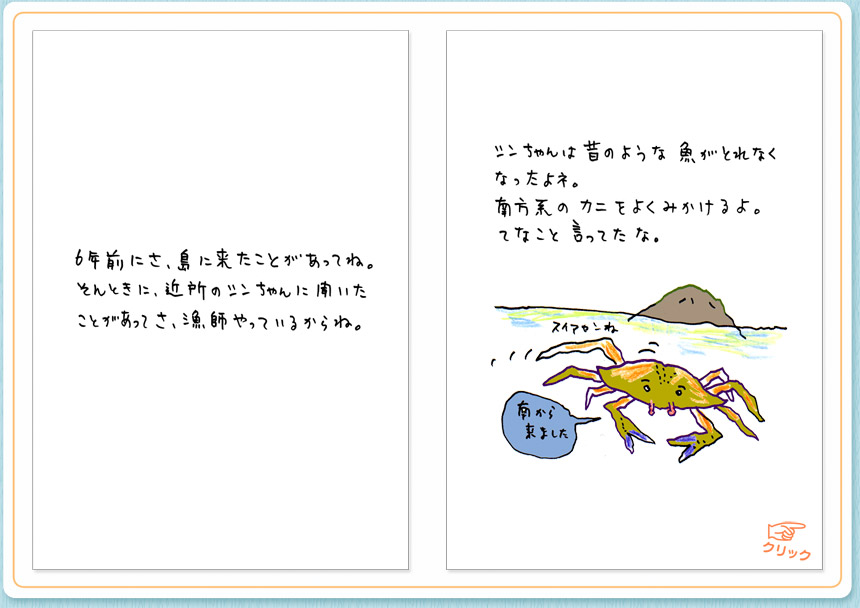 6年前にさ、島に来たことがあってね。
そんときに、近所のシンちゃんに聞いた
ことがあってさ、漁師やっているからね。
シンちゃんは昔のような魚がとれなく
なったよネ。
南方系のカニをよくみかけるよ。
てなこと言ってたな。
南から
来ました
クリック